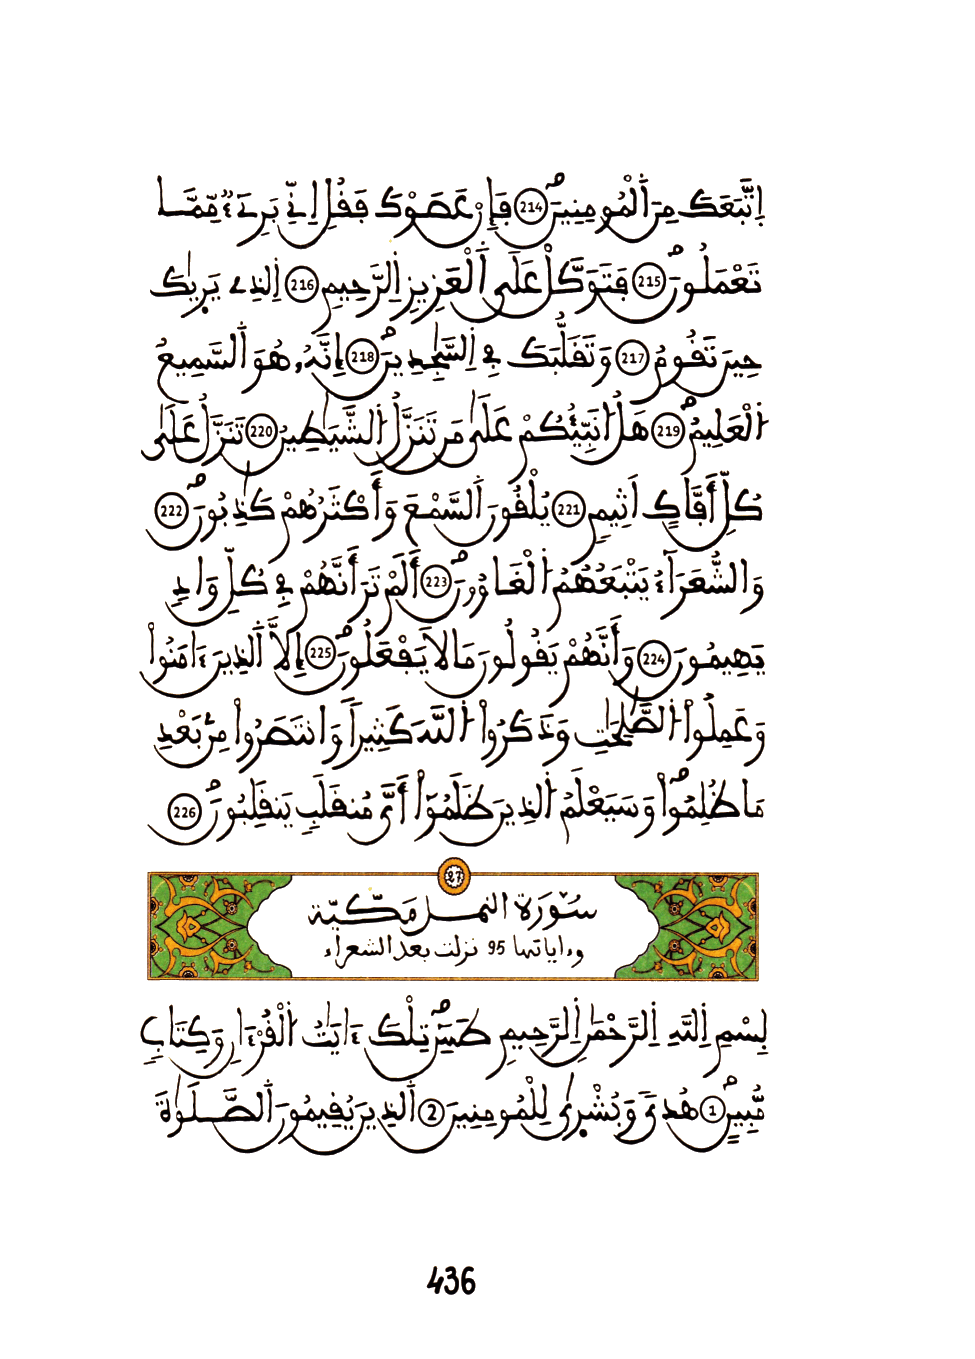 اِتَّبَعَكَ مِنَ اَ۬لْمُومِنِينَۖ 214 فَإِنْ عَصَوْكَ فَقُلِ اِنِّے بَرِےٓءٞ مِّمَّا
تَعْمَلُونَۖ 215 فَتَوَكَّلْ عَلَى اَ۬لْعَزِيزِ اِ۬لرَّحِيمِ 216 اِ۬لذِے يَر۪يٰكَ
حِينَ تَقُومُ 217 وَتَقَلُّبَكَ فِے اِ۬لسَّٰجِدِينَۖ 218 إِنَّهُۥ هُوَ اَ۬لسَّمِيعُ
اُ۬لْعَلِيمُۖ 219 هَلُ ا۟نَبِّئُكُمْ عَلَىٰ مَن تَنَزَّلُ اُ۬لشَّيَٰطِينُ 220 تَنَزَّلُ عَلَىٰ
كُلِّ أَفَّاكٍ اَثِيمٖ 221 يُلْقُونَ اَ۬لسَّمْعَ وَأَكْثَرُهُمْ كَٰذِبُونَۖ 222
وَالشُّعَرَآءُ يَتْبَعُهُمُ اُ۬لْغَاوُۥنَۖ 223 أَلَمْ تَرَ أَنَّهُمْ فِے كُلِّ وَادٖ
يَهِيمُونَ 224 وَأَنَّهُمْ يَقُولُونَ مَا لَا يَفْعَلُونَۖ 225 إِلَّا اَ۬لذِينَ ءَامَنُواْ
وَعَمِلُواْ اُ۬لصَّٰلِحَٰتِ وَذَكَرُواْ اُ۬للَّهَ كَثِيراٗ وَانتَصَرُواْ مِنۢ بَعْدِ
مَا ظُلِمُواْۖ وَسَيَعْلَمُ اُ۬لذِينَ ظَلَمُوٓاْ أَيَّ مُنقَلَبٖ يَنقَلِبُونَۖ 226
27
سُورَةُ النمل مَكّيّة
وءاياتها 95 نزلت بعد الشعراء
بِسْمِ اِ۬للَّهِ اِ۬لرَّحْمَٰنِ اِ۬لرَّحِيمِ طَسِٓۖ تِلْكَ ءَايَٰتُ اُ۬لْقُرْءَانِ وَكِتَابٖ
مُّبِينٍۖ 1 هُدىٗ وَبُشْر۪ىٰ لِلْمُومِنِينَ 2 اَ۬لذِينَ يُقِيمُونَ اَ۬لصَّلَوٰةَ
436